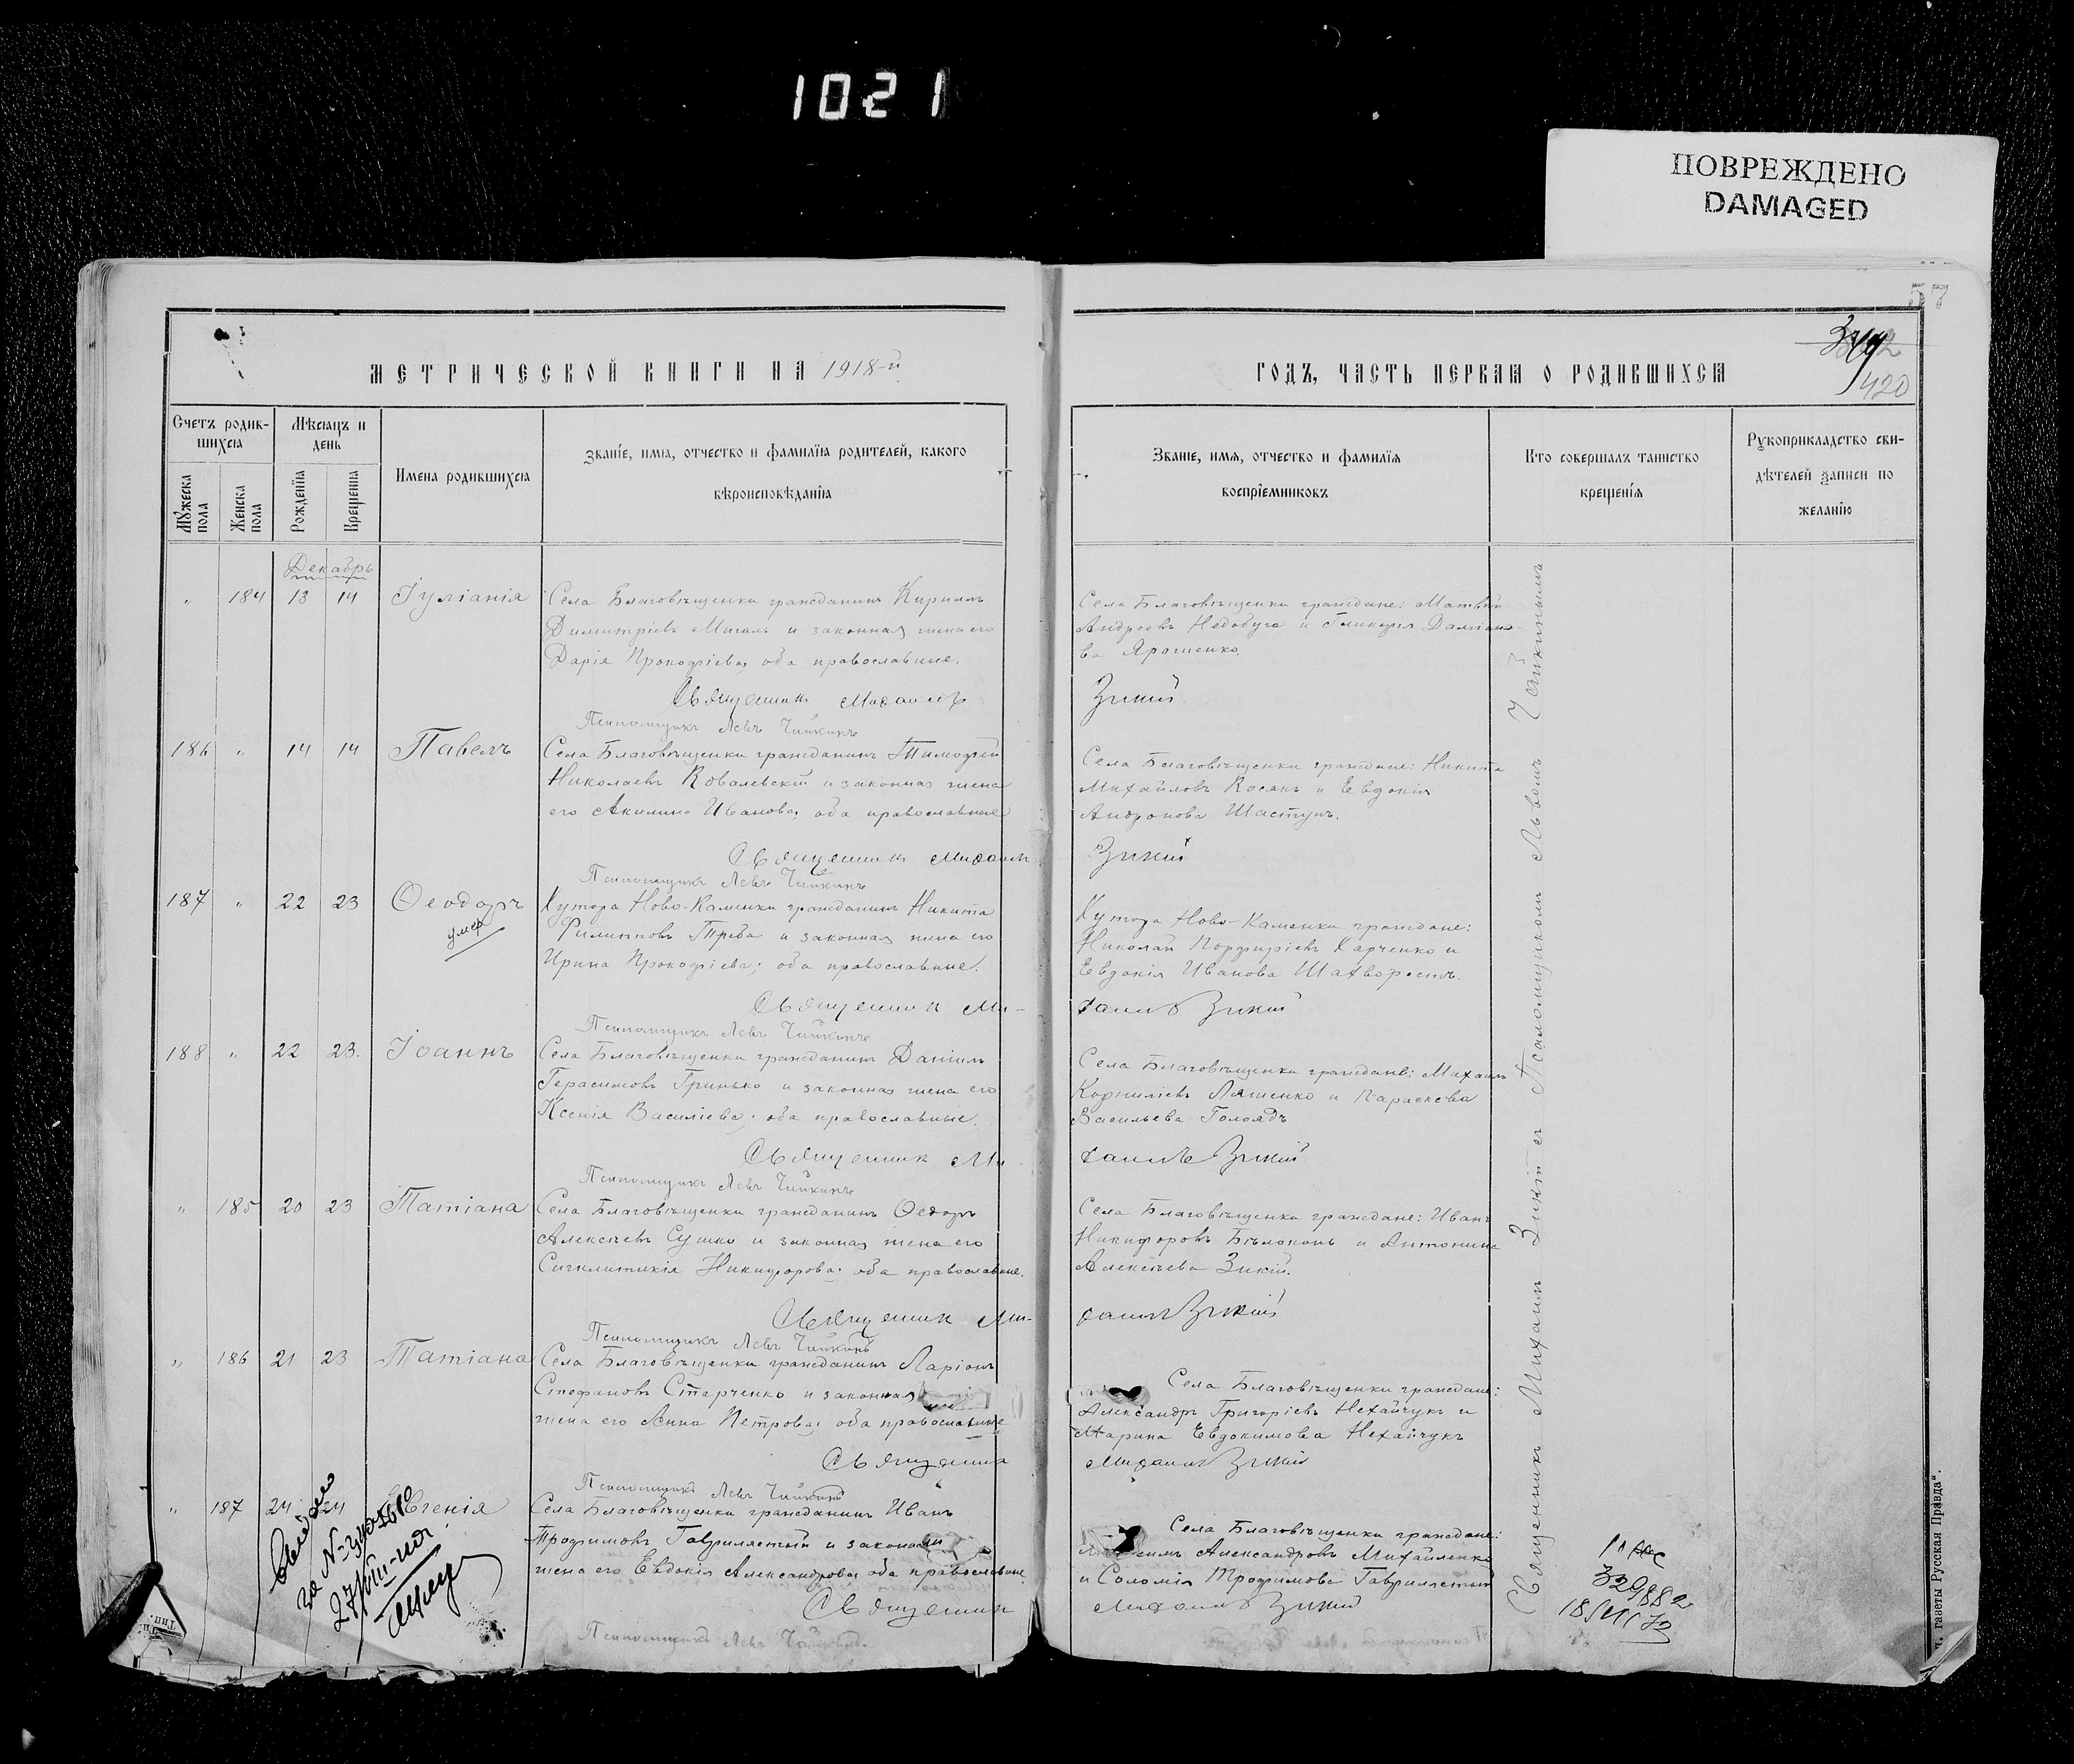 1021
ПОВРЕЖДЕНО
DAMAGED
57
420
МЕТРИЧЕСКОЙ КНИГИ НА 1918-й
ГОДЪ, ЧАСТЬ ПЕРВАЯ О РОДИВШИХСЯ
Счетъ родив-
шихся
Мужеска пола
Женска пола
Мѣсяцъ и
день
Рожденія
Крещенія
Имена родившихся
Званіе, имя, отчество и фамилія родителей, какого
вѣроисповѣданія
Званіе, имя, отчество и фамилія
воспріемниковъ
Кто совершалъ таинство
крещенія
Рукоприкладство сви-
дѣтелей записи по
желанію
Декабрь
" 184 13 14 Іуліанія
Села Благовѣщенки гражданинъ Кириллъ
Димитріевъ Мигаль и законная жена его
Дарія Прокофіева, оба православные.
Села Благовѣщенки граждане: Матвѣй
Андреевъ Недобуга и Гликерія Даміано-
ва Ярошенко.
Священникъ Михаилъ Зикій
Псаломщикъ Левъ Чайкинъ
186 " 14 14 Павелъ
Села Благовѣщенки гражданинъ Тимофей
Николаевъ Ковалевскій и законная жена
его Акилина Иванова, оба православные
Села Благовѣщенки граждане: Никита
Михайловъ Косакъ и Евдокія
Андронова Шастунъ.
Священникъ Михаилъ Зикій
Псаломщикъ Левъ Чайкинъ
187 " 22 23 Ѳеодоръ
умер
Хутора Ново-Каменки гражданинъ Никита
Филипповъ Треба и законная жена его
Ирина Прокофіева; оба православные.
Хутора Ново-Каменки граждане:
Николай Порфиріевъ Харченко и
Евдокія Иванова Шахворостъ.
Священникъ Михаилъ Зикій
Псаломщикъ Левъ Чайкинъ
188 " 22 23. Іоаннъ
Села Благовѣщенки гражданинъ Даніилъ
Герасимовъ Гринько и законная жена его
Ксенія Василіева; оба православные.
Села Благовѣщенки граждане: Михаилъ
Корниліевъ Ляшенко и Параскева
Васильева Голоядъ
Священникъ Михаилъ Зикій
Псаломщикъ Левъ Чайкинъ
" 185 20 23 Татіана
Села Благовѣщенки гражданинъ Ѳеодоръ
Алексѣевъ Сушко и законная жена его
Сигклитикія Никифорова; оба православные.
Села Благовѣщенки граждане: Иванъ
Никифоровъ Бѣлоконь и Антонина
Алексѣева Зикій.
Священникъ Михаилъ Зикій
Псаломщикъ Левъ Чайкинъ
" 186 21 23 Татіана
Села Благовѣщенки гражданинъ Ларіонъ
Стефановъ Старченко и законная
жена его Анна Петрова; оба православные
Села Благовѣщенки граждане:
Александръ Григоріевъ Нехайчукъ и
Марина Евдокимова Нехайчукъ
Священникъ Михаилъ Зикій
Псаломщикъ Левъ Чайкинъ
" 187 24 24 Евгенія
Села Благовѣщенки гражданинъ Иванъ
Трофимовъ Гаврилястый и законная
жена его Евдокія Александрова; оба православные
Села Благовѣщенки граждане:
Александровъ Михайленко
и Соломія Трофимова Гаврилястый
Священникъ Михаилъ Зикій
Псаломщикъ Левъ Чайкинъ
Священникъ Михаилъ Зикій съ Псаломщикомъ Львомъ Чайкинымъ
329882
газеты Русская Правда".